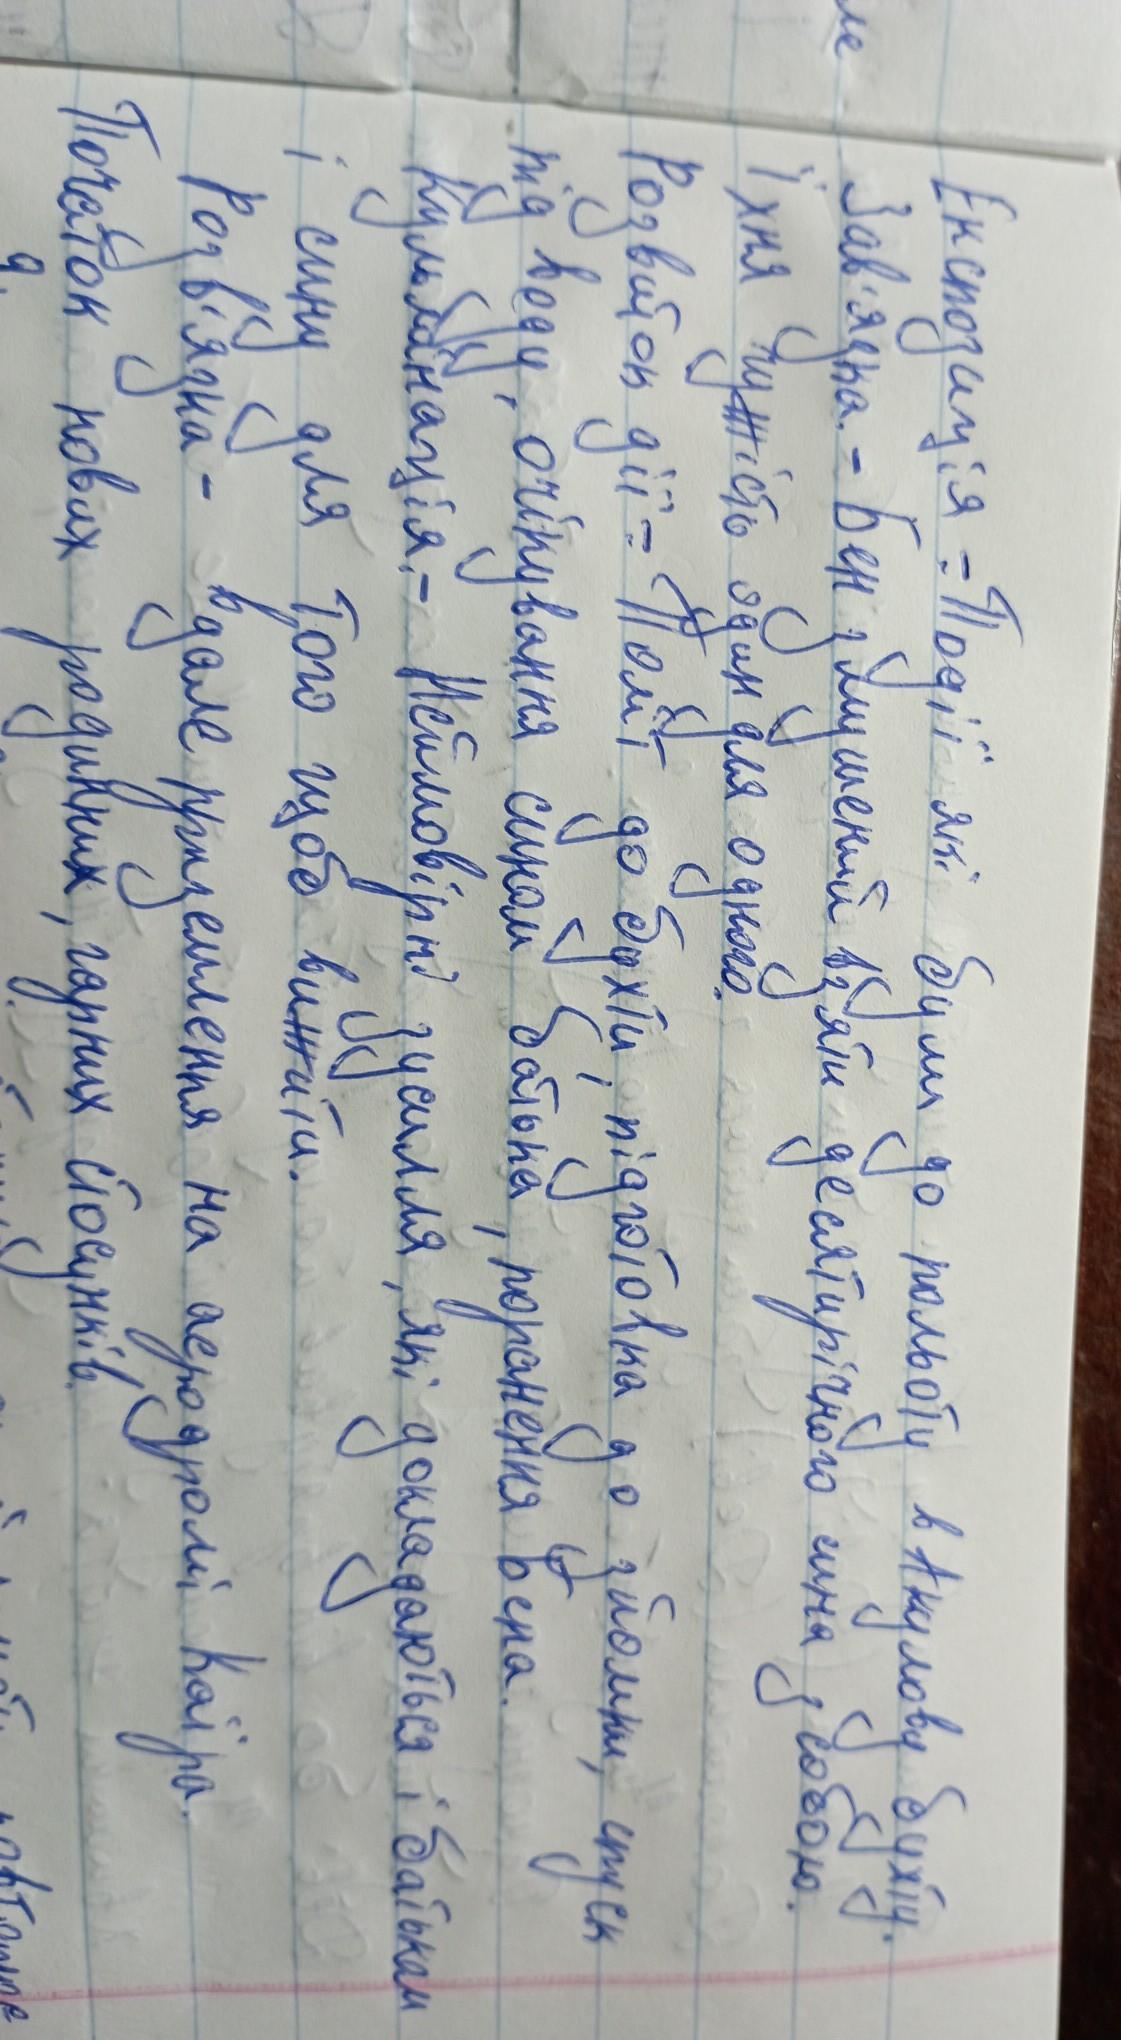 ле
Експозиція - Події які були до польоту в Акулову бухту.
Зав'язка. - Бен змушений взяти десятирічного сина з собою.
Їхня чужість один для одного.
Розвиток дії - Політ до бухти, підготовка до зйомки, спуск
під воду, очікування сином батька, поранення Бена.
Кульмінація. - Неймовірні зусилля, які докладаються і батьком
і сину для того щоб вижити.
Розв'язка - вдале приземлення на аеродромі Каїра.
Початок нових родинних, гарних стосунків.